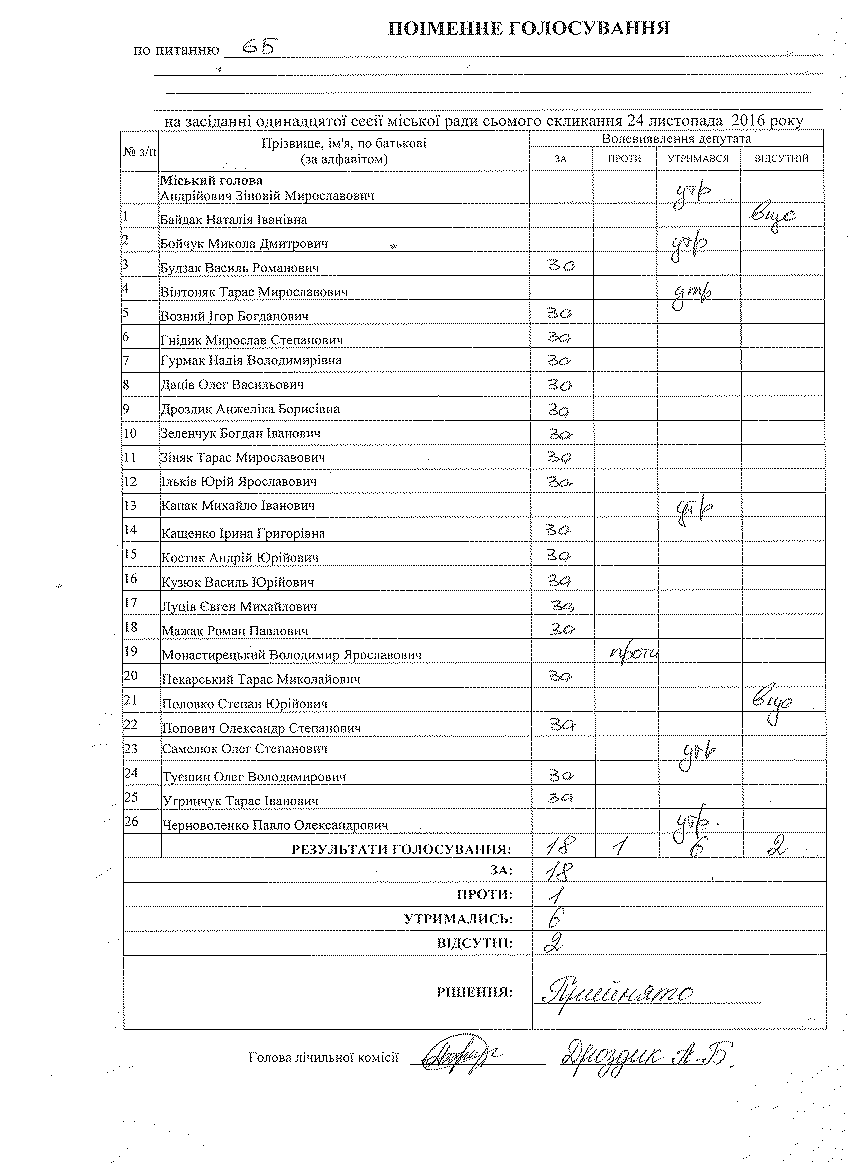 ПОІМЕННЕ ГОЛОСУВАННЯ
по питанню 6Б
на засіданні одинадцятої сесії міської ради сьомого скликання 24 листопада 2016 року
№ з/п Прізвище, ім'я, по батькові (за алфавітом) Волевиявлення депутата
ЗА ПРОТИ УТРИМАВСЯ ВІДСУТНІЙ
Міський голова
Андрійович Зіновій Мирославович утр
1 Байдак Наталія Іванівна відс
2 Бойчук Микола Дмитрович утр
3 Будзак Василь Романович за
4 Вінтоняк Тарас Мирославович утр
5 Возний Ігор Богданович за
6 Гнідик Мирослав Степанович за
7 Гурмак Надія Володимирівна за
8 Даців Олег Васильович за
9 Дроздик Анжеліка Борисівна за
10 Зеленчук Богдан Іванович за
11 Зіняк Тарас Мирославович за
12 Ільків Юрій Ярославович за
13 Капак Михайло Іванович утр
14 Кащенко Ірина Григорівна за
15 Костик Андрій Юрійович за
16 Кузюк Василь Юрійович за
17 Луців Євген Михайлович за
18 Мажак Роман Павлович за
19 Монастирецький Володимир Ярославович проти
20 Пекарський Тарас Миколайович за
21 Половко Степан Юрійович відс
22 Попович Олександр Степанович за
23 Самелюк Олег Степанович утр
24 Туєшин Олег Володимирович за
25 Угринчук Тарас Іванович за
26 Черноволенко Павло Олександрович утр.
РЕЗУЛЬТАТИ ГОЛОСУВАННЯ: 18 1 6 2
ЗА: 18
ПРОТИ: 1
УТРИМАЛИСЬ: 6
ВІДСУТНІ: 2
РІШЕННЯ: Прийнято
Голова лічильної комісії Дроздик А.Б.